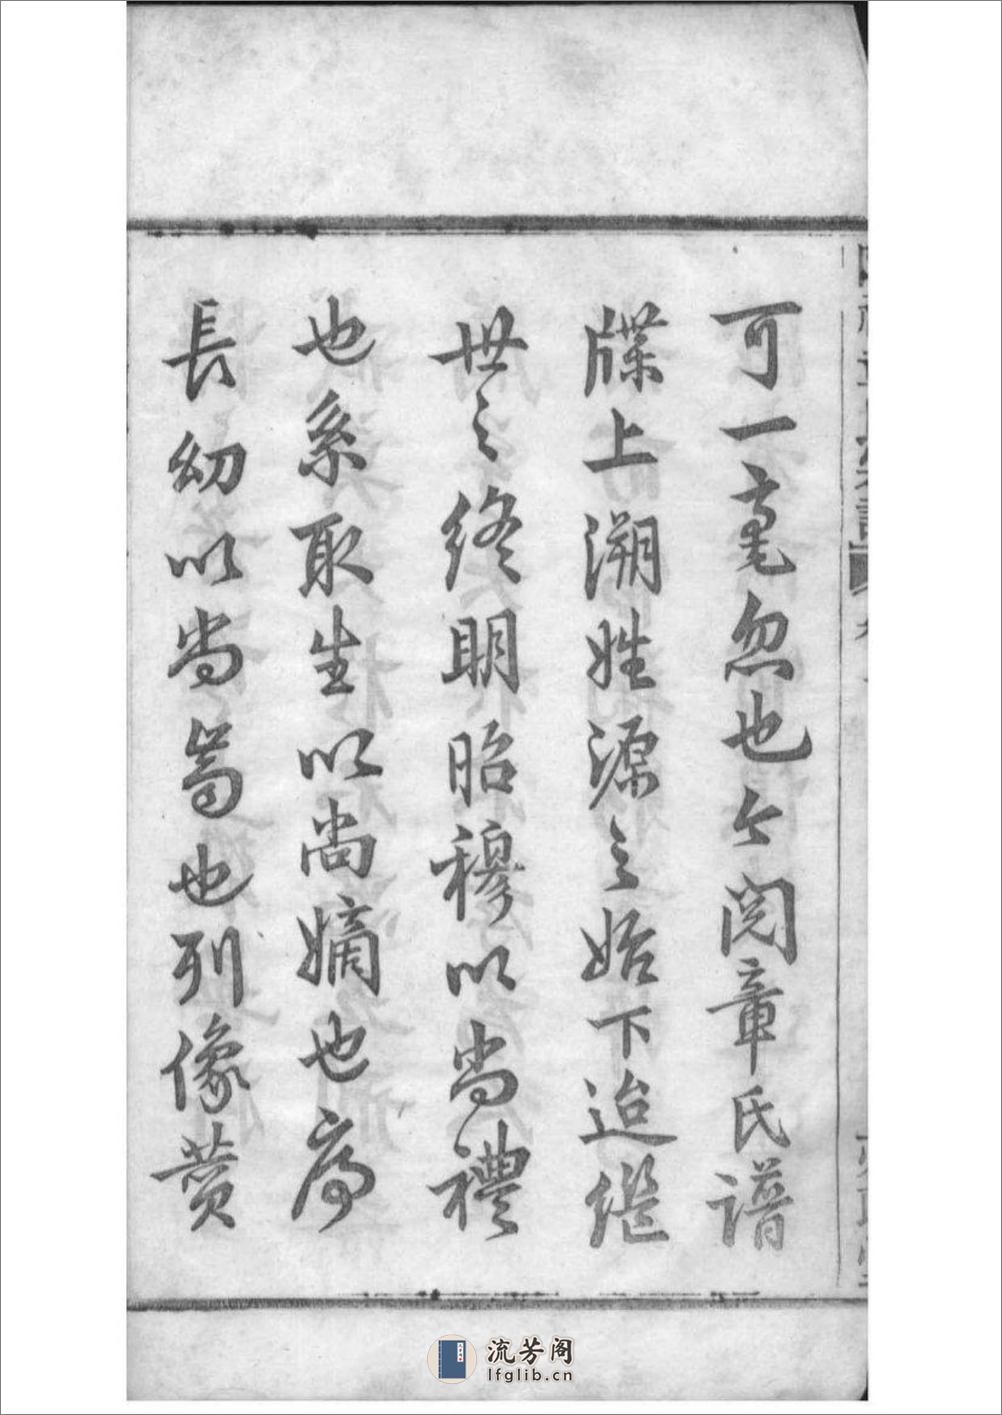 可一毫忽也今閱章氏譜
牒上溯姓源之始下迨繼
世之終明昭穆以尚禮
也系取生以尚嫡也序
長幼以尚齒也列像贊
流芳阁
lfglib.cn